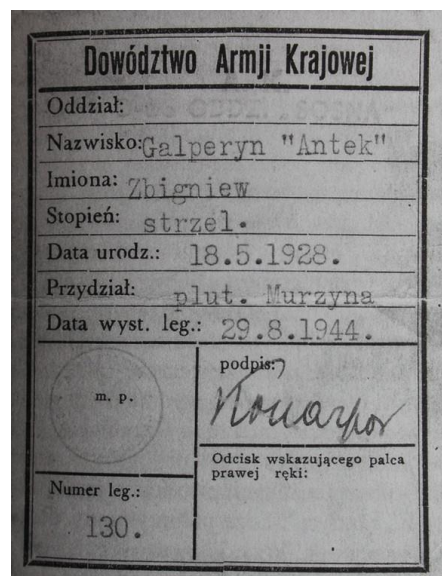 Dowództwo Armji Krajowej
Oddział:
Nazwisko: Galperyn "Antek"
Imiona: Zbigniew
Stopień: strzel.
Data urodz.: 18.5.1928.
Przydział: plut. Murzyna
Data wyst. leg.: 29.8.1944.
m. p.
podpis:
Odcisk wskazującego palca
prawej ręki:
Numer leg.:
130.